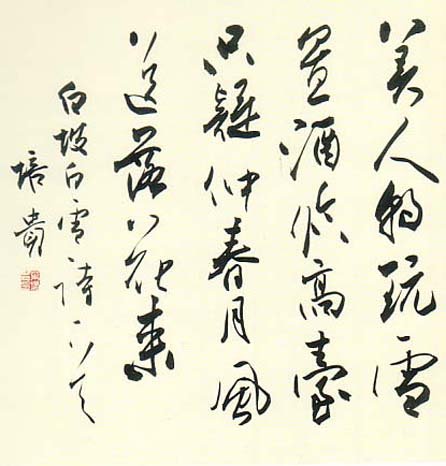 美人朝玩雪
置酒臨高臺
只疑仲春月風
送落花來
白坡白雪詩一首
培貴